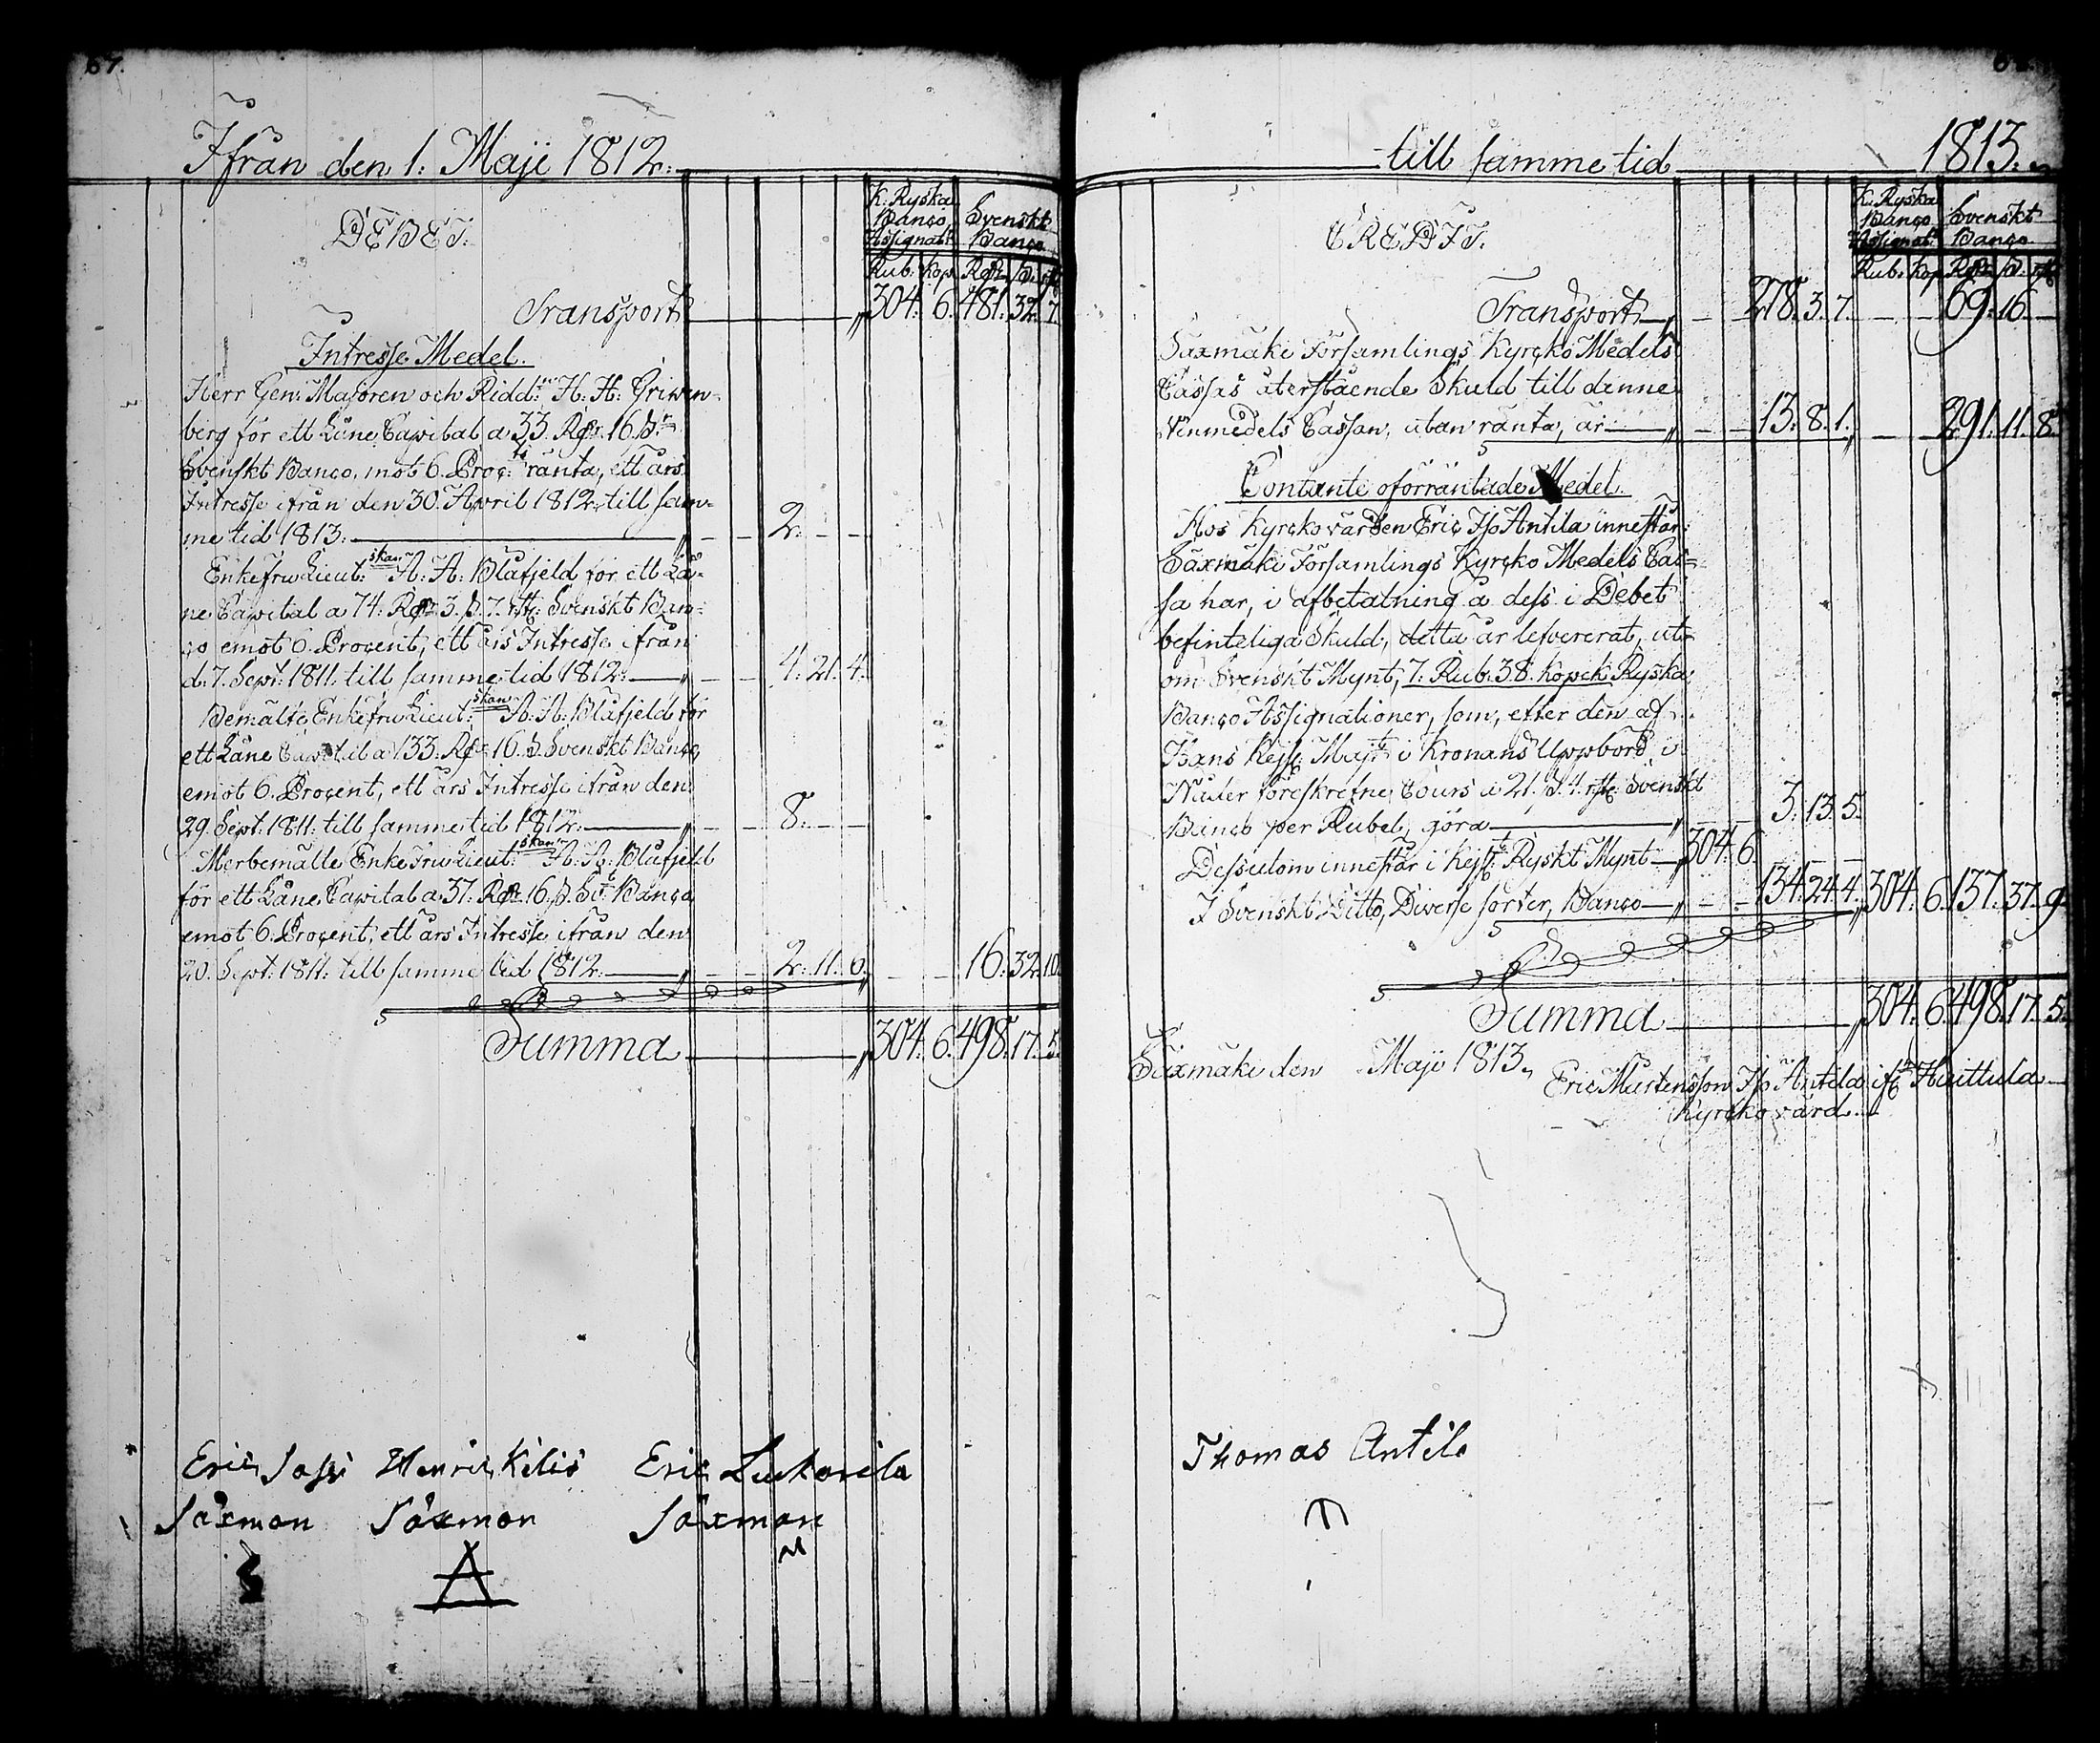 67.
Ifrån den 1: Maji 1812.
DEBET.
K: Ryska Banco Assignat:r
Svenskt Banco
Rub. Kop. Rdr ß. rst.
Transport 304. 6. 481. 32. 7.
Intresse Medel.
Herr Gen: Majoren och Ridd:n H: H: Gripen-
berg för ett Låne Capital a 33. Rdr 16. ß.
Svenskt Banco, mot 6. Proc:to ränta, ett års
Intresse ifrån den 30. April 1812. till sam-
me tid 1813. 2.
Enkefru Lieut:skan A: A: Blåfjeld för ett Lå-
ne Capital a 74: Rdr 3. ß. 7. rst: Svenskt Ban-
co emot 6. Procent, ett års Intresse ifrån
d: 7. Sept: 1811. till samme tid 1812. 4. 21. 4.
Bemälte Enkefru Lieut:skan A: A: Blåfjeld för
ett Låne Capital a 133. Rdr 16. ß. Svenskt Banco,
emot 6. Procent, ett års Intresse ifrån den
29. Sept: 1811. till samme tid 1812. 8.
Merbemälte Enke Fru Lieut:skan A: A: Blåfjeld
för ett Låne Capital a 37. Rdr 16. ß. Sv:t Banco
emot 6. Procent, ett års Intresse ifrån den
20. Sept: 1811. till samme tid 1812. 2. 11. 6. 16. 32. 10.
Summa 304. 6. 498. 17. 5.
Eric Sassi Henric Kiliö Eric Lukarila
Säxmän Säxmän Säxmän
till samme tid 1813.
CREDIT.
K: Ryska Banco Assignat:r
Svenskt Banco
Rub. Kop. Rdr ß. rst.
Transport 278. 3. 7. 69. 16.
Säxmäki Församlings Kyrcko Medels
Cassas återstående Skuld till denne
Vinmedels Cassan, utan ränta, är 13. 8. 1. 291. 11. 8.
Contante oförräntade Medel.
Hos Kyrckovärden Eric Iso Antila innestår:
Säxmäki Församlings Kyrcko Medels Cas-
sa har, i afbetalning å dess i Debet
befinteliga Skuld, detta år lefvererat, ut-
om Svenskt Mynt, 7. Rub. 38. Kopek Ryska
Banco Assignationer, som, efter den af
Hans Kejs: Maj:t i Kronans Uppbörd i
Nåder föreskrefne Cours a 21. ß. 4. rst: Svenskt
Banco per Rubel, göra 3. 13. 5.
Dessutom innestår i Kejs: Ryskt Mynt 304. 6.
I Svenskt Ditto, Diverse sorter, Banco 134. 24. 4. 304. 6. 137. 37. 9
Summa 304. 6. 498. 17. 5.
Säxmäki den Maji 1813.
Eric Mårtensson Iso Antila ifr: Huittula
Kyrckovärd.
Thomas Antila